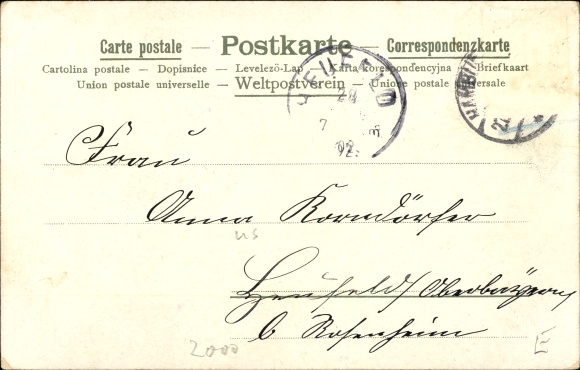 Carte postale — Postkarte — Correspondenzkarte
Cartolina postale — Dopisnice — Levelező-Lap — Karta korespondencyjna — Briefkaart
Union postale universelle — Weltpostverein — Union postale universale
HEUFELD
28
7
02
HAMBURG
Frau
Anna Korndörfer
us
Heufeld / Oberbayern
b Rosenheim
2000
E